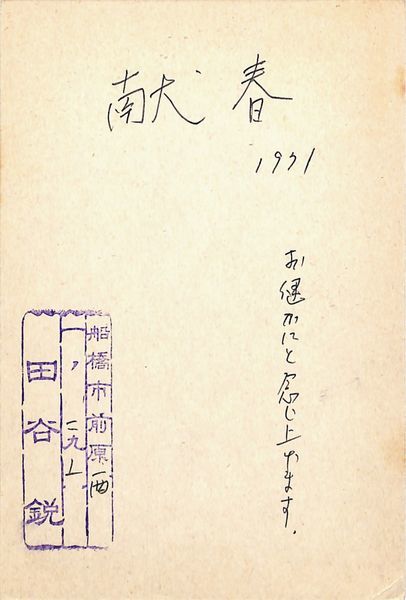 献春
1971
お健かにと念じ上げます。
船橋市前原西
一ノ二九
田谷鋭